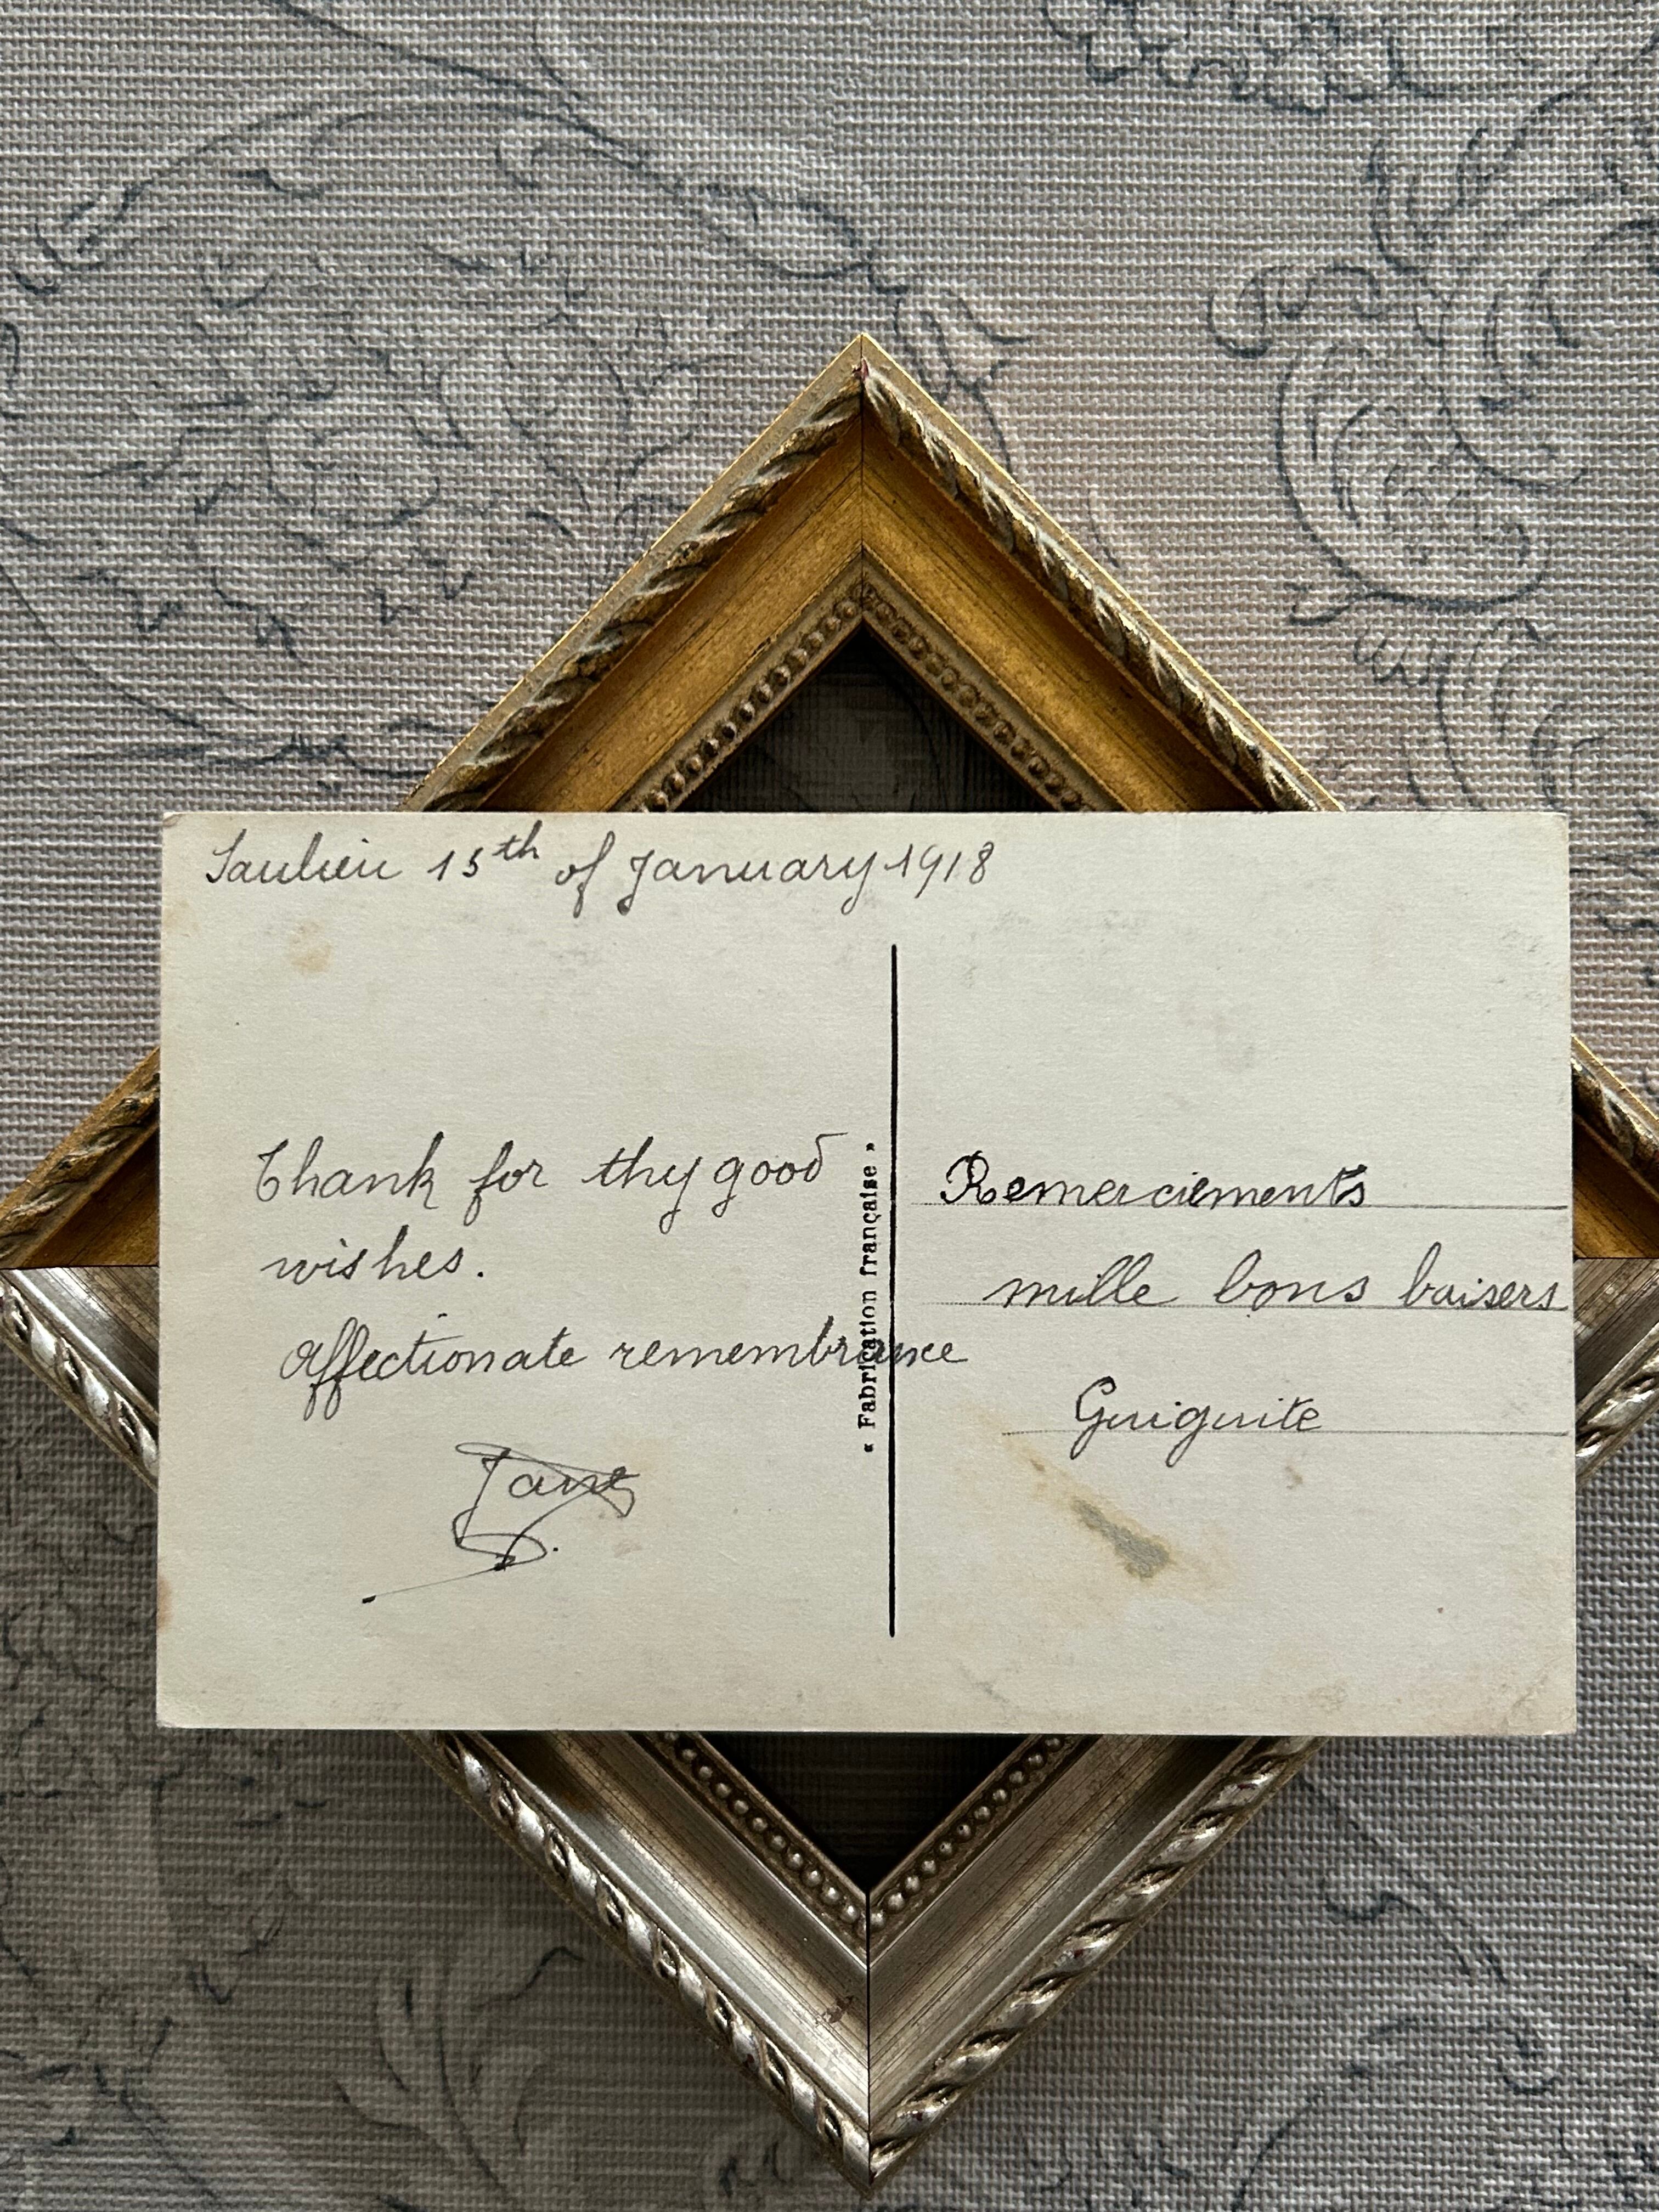 Saulieu 15th of January 1918
Thank for thy good
wishes.
Affectionate remembrance
Jane
« Fabrication française »
Remerciements
mille bons baisers
Guiguite